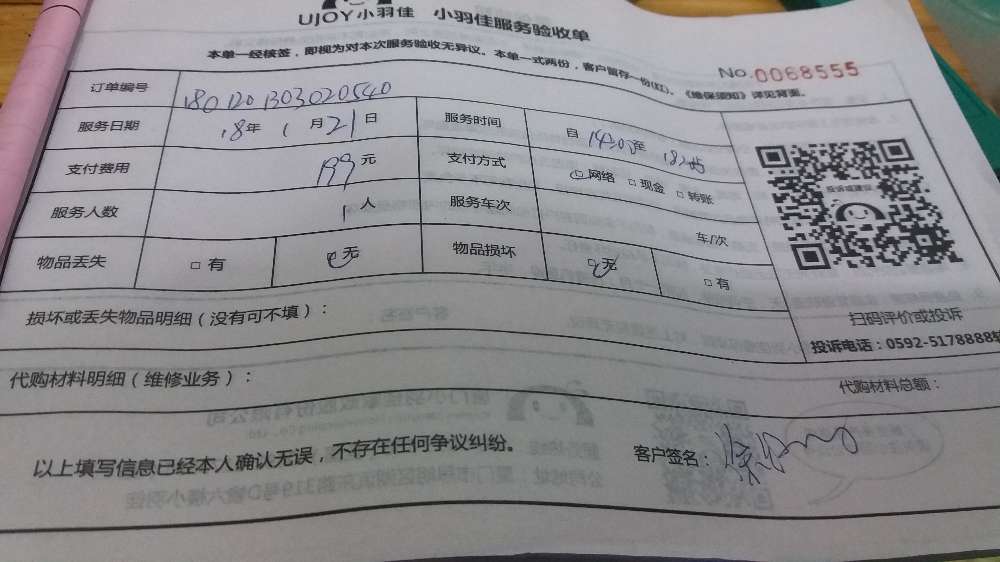 UJOY小羽佳 小羽佳服务验收单
本单一经核签，即视为对本次服务验收无异议。本单一式两份，客户留存一份(红)。《维保须知》详见背面。
No.0068555
订单编号 1801201303020540
服务日期 18年1月21日 服务时间 自 14:00至
支付费用 199元 支付方式 网络 □现金 □转账
服务人数 1人 服务车次 车/次
物品丢失 □有 无 物品损坏 无 □有
投诉或建议
扫码评价或投诉
投诉电话：0592-5178888
损坏或丢失物品明细（没有可不填）：
代购材料明细（维修业务）： 代购材料总额：
以上填写信息已经本人确认无误，不存在任何争议纠纷。 客户签名：